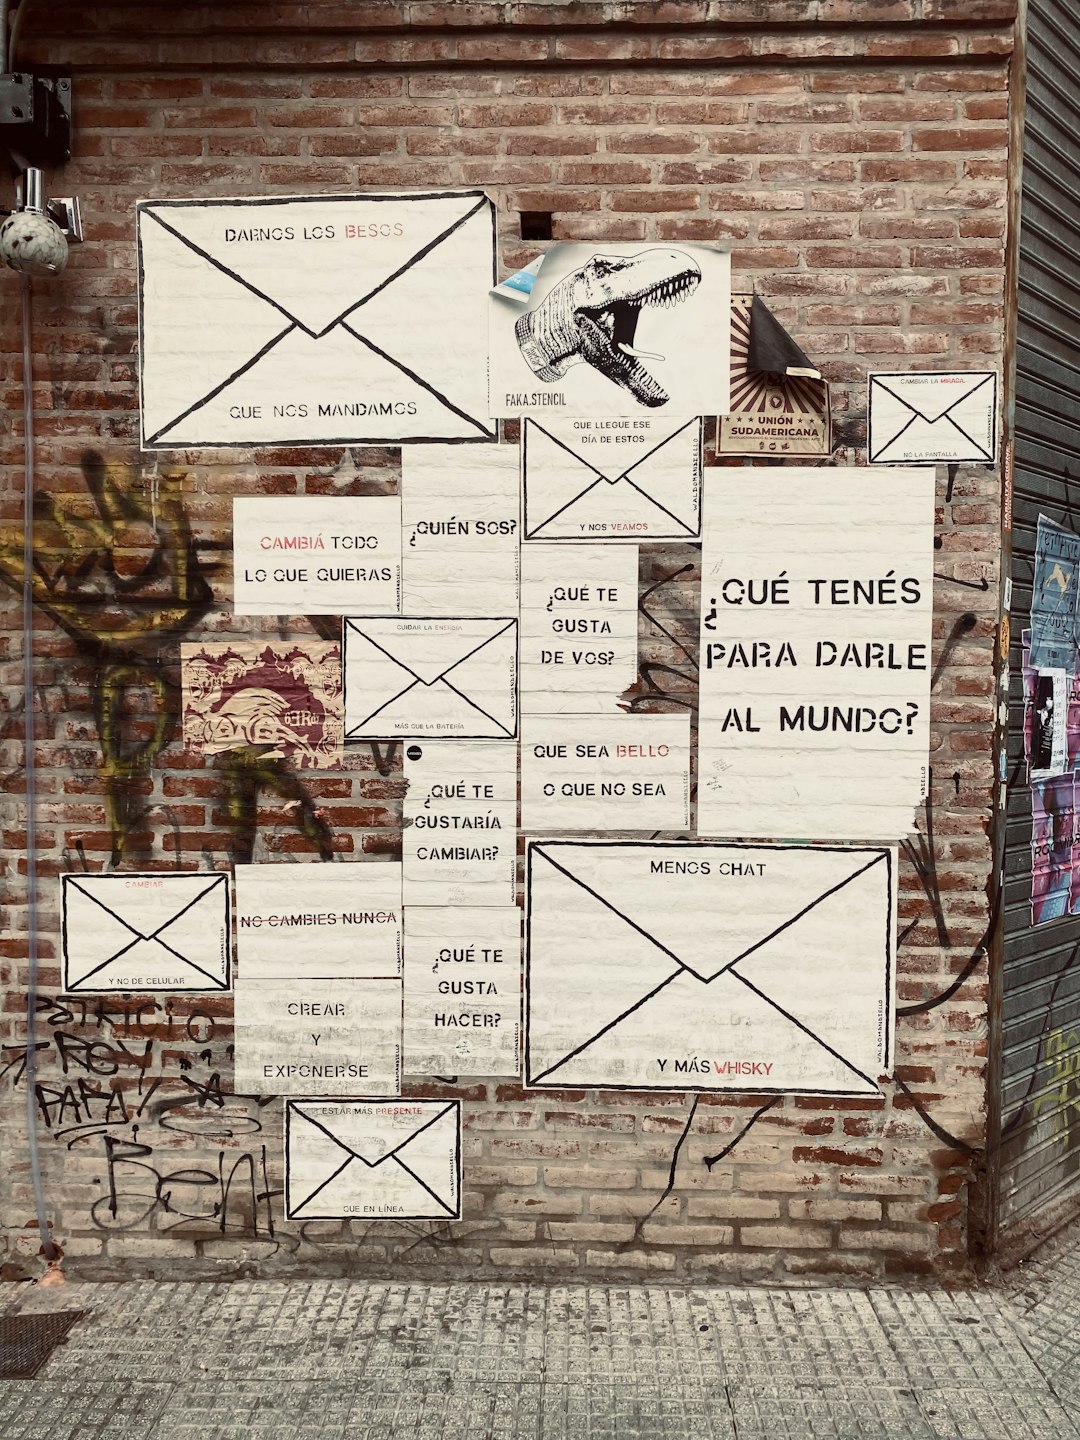 DARNOS LOS BESOS
QUE NOS MANDAMOS
FAKA.STENCIL
UNIÓN
SUDAMERICANA
CAMBIAR LA MIRADA
NO LA PANTALLA
QUE LLEGUE ESE
DÍA DE ESTOS
Y NOS VEAMOS
WALDOMANDIELLO
CAMBIÁ TODO
LO QUE QUIERAS
WALDOMANDIELLO
¿QUIÉN SOS?
¿QUÉ TE
GUSTA
DE VOS?
¿QUÉ TENÉS
PARA DARLE
AL MUNDO?
CUIDAR LA ENERGÍA
MÁS QUE LA BATERÍA
WALDOMANDIELLO
QUE SEA BELLO
O QUE NO SEA
¿QUÉ TE
GUSTARÍA
CAMBIAR?
MENOS CHAT
Y MÁS WHISKY
WALDOMANDIELLO
CAMBIAR
Y NO DE CELULAR
NO CAMBIES NUNCA
CREAR
Y
EXPONERSE
¿QUÉ TE
GUSTA
HACER?
ESTAR MÁS PRESENTE
QUE EN LÍNEA
WALDOMANDIELLO
PATRICIO
REY
PAPA